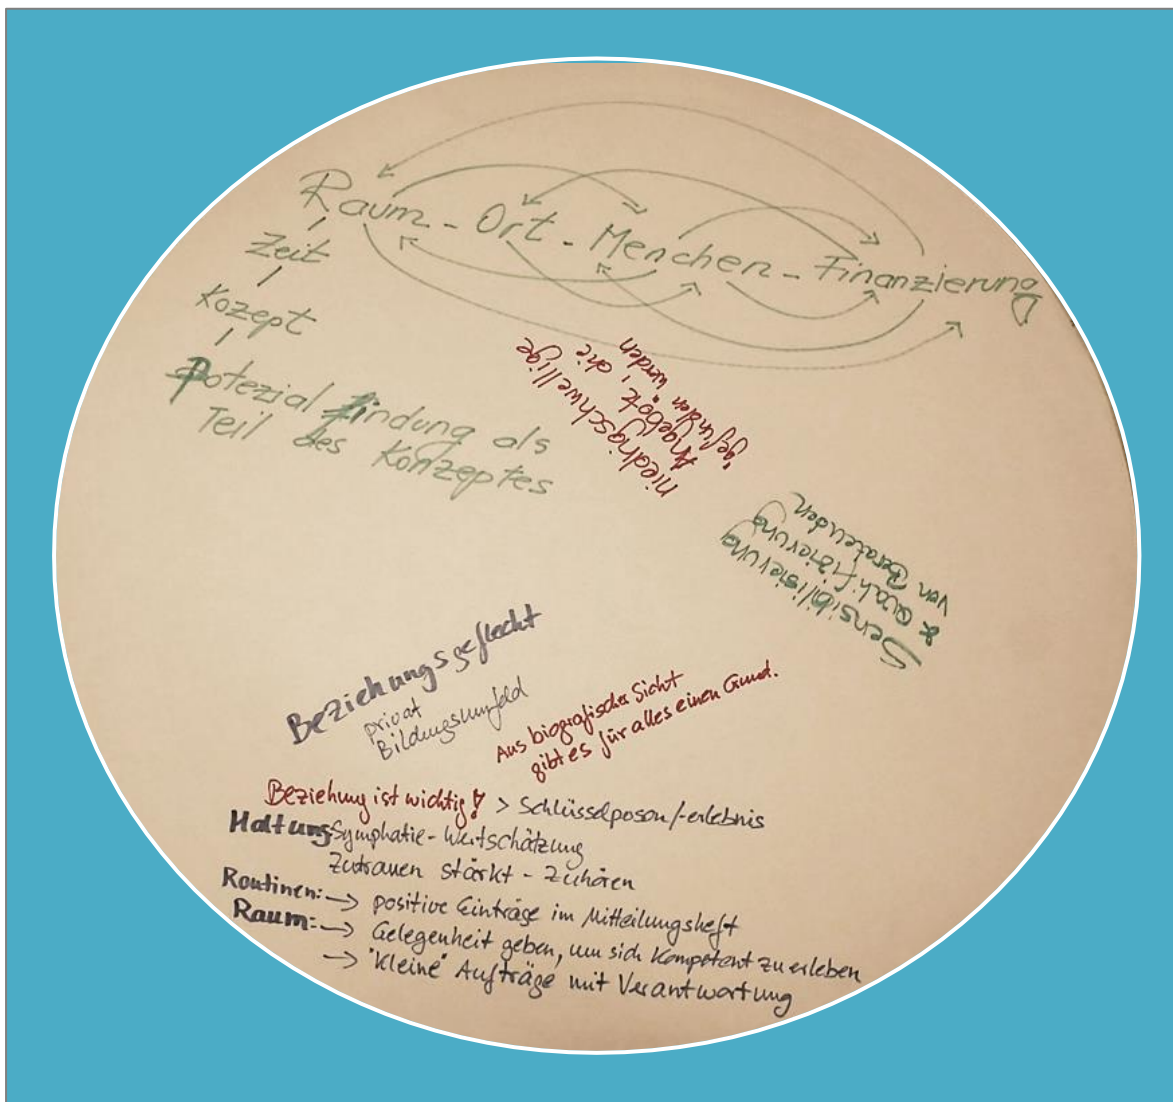 Raum - Ort - Menchen - Finanzierung
Zeit
Kozept
Potezial findung als
Teil des Konzeptes
niedrigschwellige
Angebote, die
"gefunden" werden
Sensibilisierung
& Qualifizierung
von Beratenden
Beziehungsgeflecht
privat
Bildungsumfeld
Aus biografischer Sicht
gibt es für alles einen Grund.
Beziehung ist wichtig! > Schlüsselperson/-erlebnis
Haltung Symphatie - Wertschätzung
Zutrauen stärkt - Zuhören
Routinen: → positive Einträge im Mitteilungsheft
Raum: → Gelegenheit geben, um sich kompetent zu erleben
→ "kleine" Aufträge mit Verantwortung